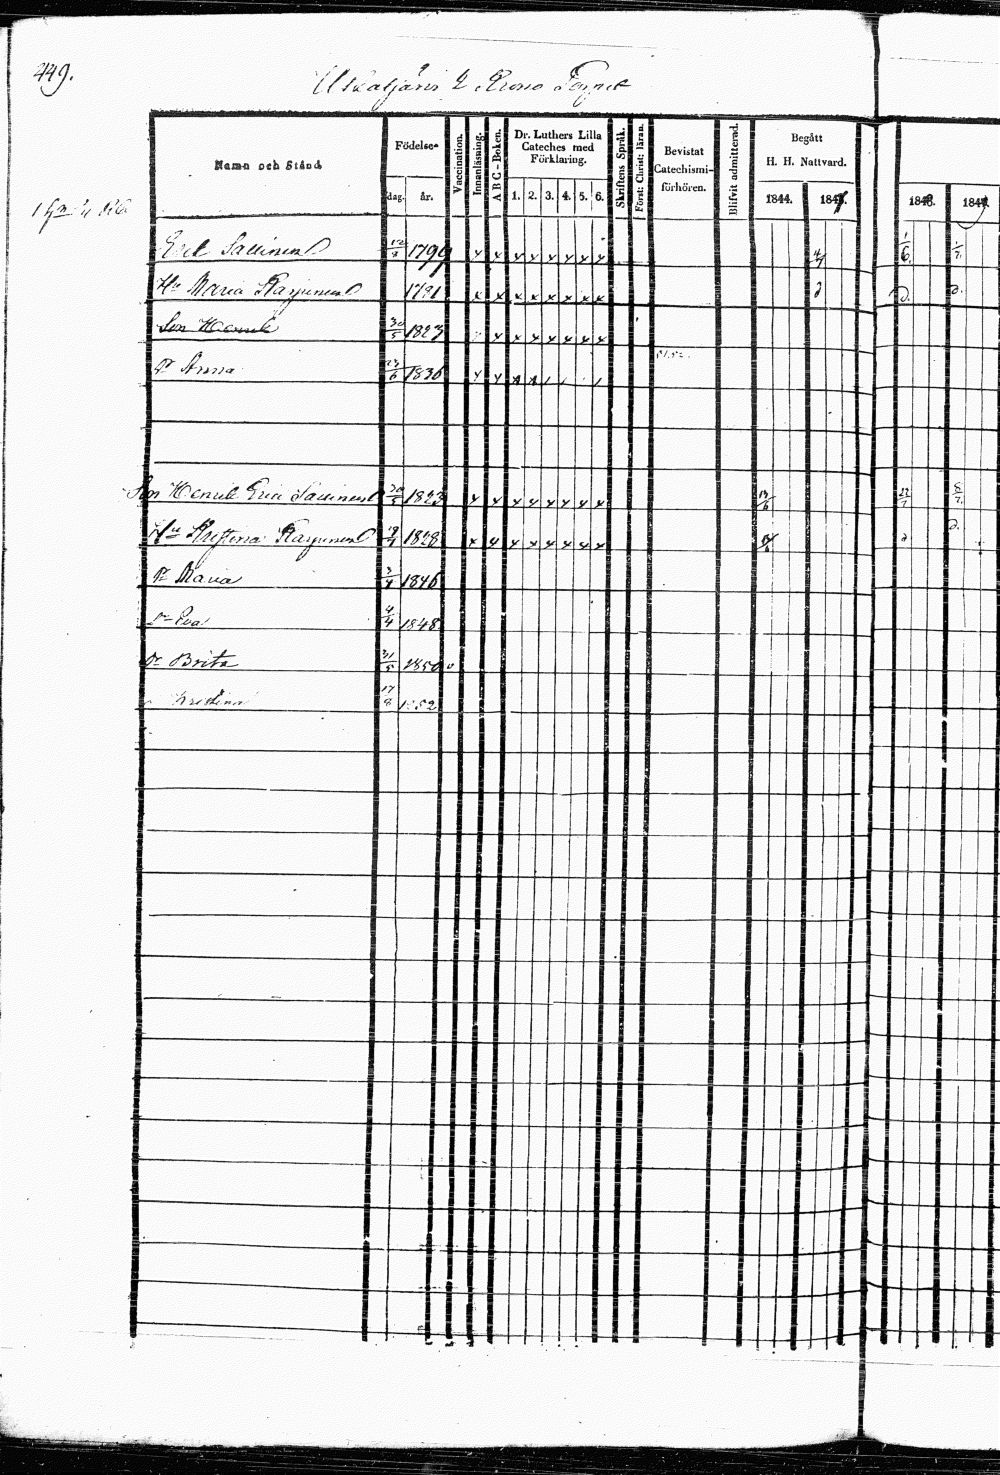 449.
Uskatjärvi 2 Krono Torpet
Namn och Stånd
Födelse-
dag. år.
Vaccination.
Innanläsning.
A B C - Boken.
Dr. Luthers Lilla
Cateches med
Förklaring.
1. 2. 3. 4. 5. 6.
Skriftens Språk.
Först: Christ: läran.
Bevistat
Catechismi-
förhören.
Blifvit admitterad.
Begått
H. H. Nattvard.
1844. 1845. 1846. 1847.
Eric Sallinen 12 1799 x x x x x x x x
Hu Maria Karjunen 1791 x x x x x x x x
Son Henric 30/5 1823 x x x x x x x
Dr Anna 23/6 1836 x x x x
Son Henric Eric Sallinen 30/5 1823 x x x x x x x x
Hu Kristina Karjunen 19 1828 x x x x x x x x
Dr Maria 3/4 1846
Dr Eva 4/4 1848
Dr Brita 31/5 1850 v
Kristina 17/8 1852